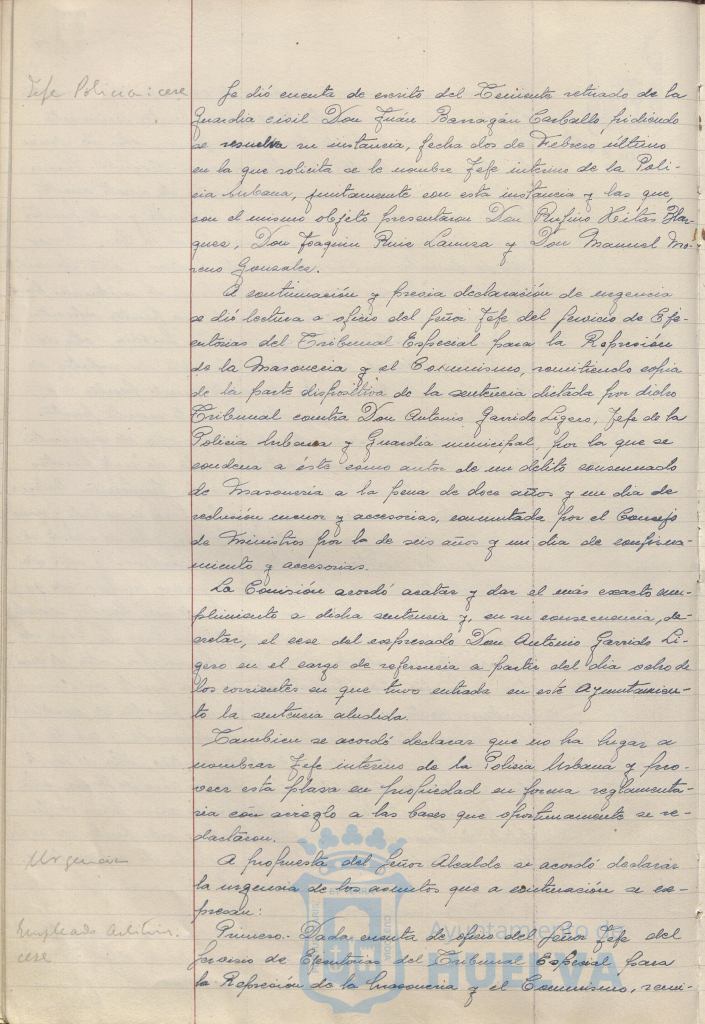 Jefe Policia: cese
Se dió cuenta de escrito del Teniente retirado de la
Guardia civil Don Juan Barragán Carballo, pidiendo
se resuelva su instancia, fecha dos de Febrero último
en la que solicita se le nombre Jefe interino de la Poli-
cia Urbana, juntamente con esta instancia y las que,
con el mismo objeto presentaron Don Rufino Hitas Mar-
ques, Don Joaquin Ruiz y Don Manuel Mo-
reno Gonzalez.
A continuación y previa declaración de urgencia
se dió lectura a oficio del Señor Jefe del Servicio de Eje-
cutorias del Tribunal Especial para la Represión
de la Masoneria y el Comunismo, remitiendo copia
de la parte dispositiva de la sentencia dictada por dicho
Tribunal contra Don Antonio Garrido Ligero, Jefe de la
Policia Urbana y Guardia municipal, por la que se
condena a éste como autor de un délito consumado
de Masoneria a la pena de doce años y un dia de
reclusión menor y accesorias, conmutada por el Consejo
de Ministros por la de seis años y un dia de confina-
miento y accesorias.
La Comisión acordó acatar y dar el más exacto cum-
plimiento a dicha sentencia y, en su consecuencia, de-
cretar, el cese del expresado Don Antonio Garrido Li-
gero en el cargo de referencia a partir del dia ocho de
los corrientes en que tuvo entrada en esté Ayuntamien-
to la sentencia aludida.
Tambien se acordó declarar que no ha lugar a
nombrar Jefe interino de la Policia Urbana y pro-
veer esta plaza en propiedad en forma reglamenta-
ria con arreglo a las bases que oportunamente se re-
dactaron.
Urgencias
A propuesta del Señor Alcalde se acordó declarar
la urgencia de los asuntos que a continuación se ex-
presan:
Empleado
cese
Primero.- Dada cuenta de oficio del Señor Jefe del
Servicio de Ejecutorias del Tribunal Especial para
la Represión de la Masoneria y el Comunismo, remi-
Ayuntamiento de
HUELVA